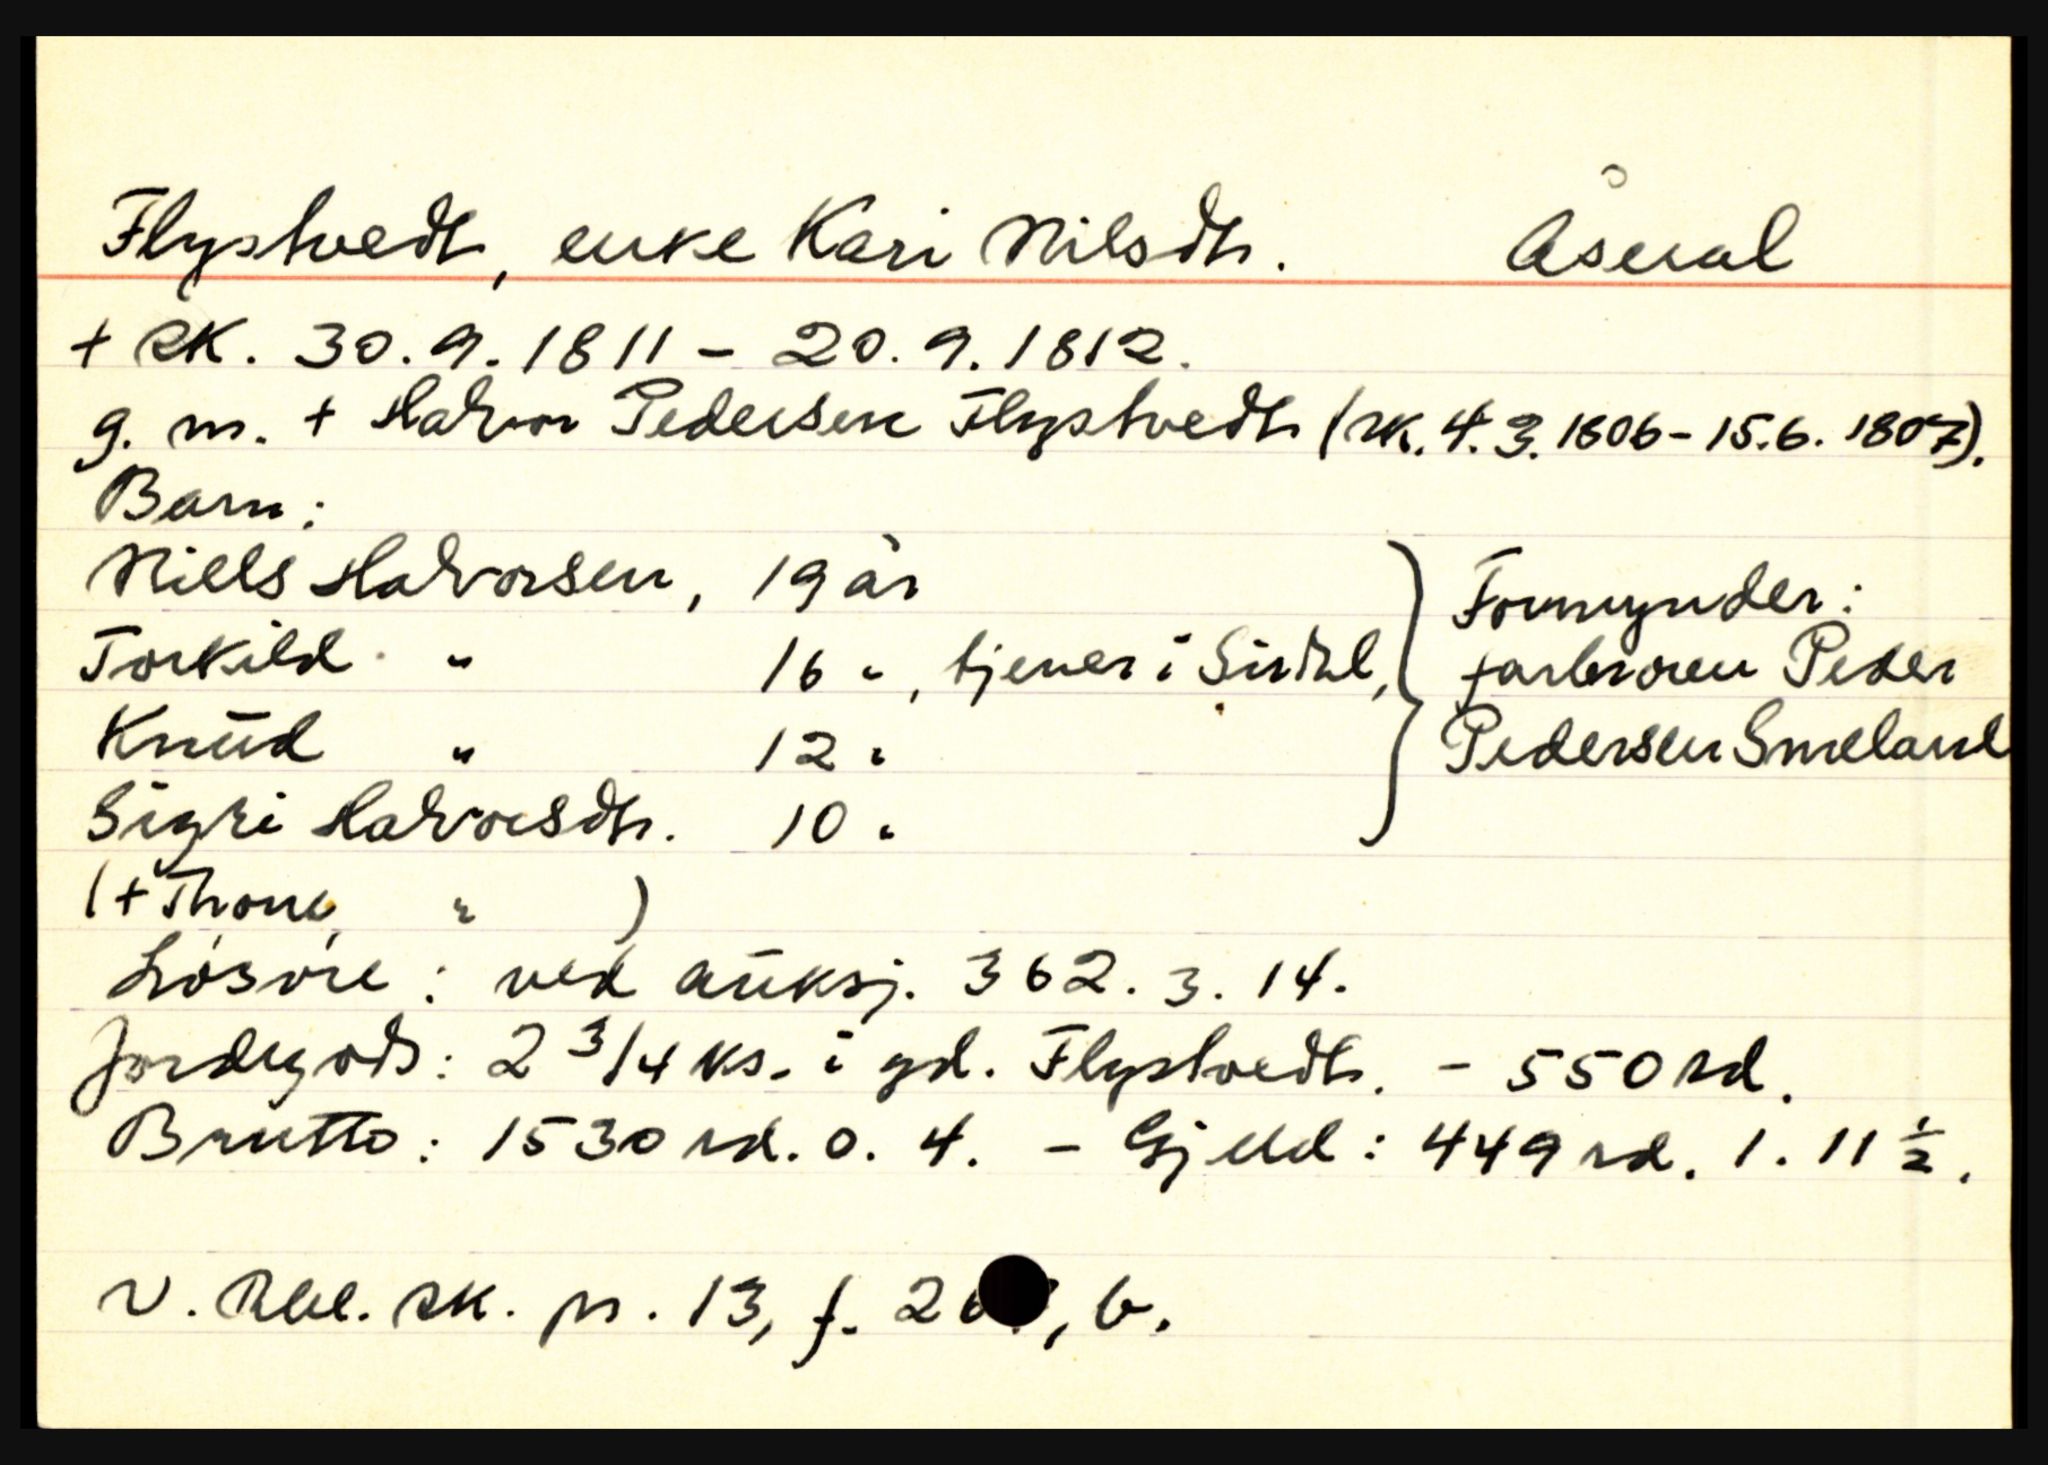 Flystvedt, enke Kari Nilsdtr. Åseral
+ SK. 30.9.1811 – 20.9.1812.
g. m. + Halvor Pedersen Flystvedt (SK. 4.3.1806 – 15.6.1807).
Barn:
Niels Halvorsen, 19 år
Torkild " 16 " , tjener i Sirdal,
Knud " 12 "
Sigri Halvorsdtr. 10 "
Formynder:
farbroren Peder
Pedersen Smeland
(+ Thone, " )
Løsøre: ved auksj. 362. 3. 14.
Jordegods: 2 3/4 ks. i gd. Flystvedt. – 550 rd.
Brutto: 1530 rd. 0. 4. – Gjeld: 449 rd. 1. 11 1/2.
V. Rbl. SK. pr. 13, f. , b.